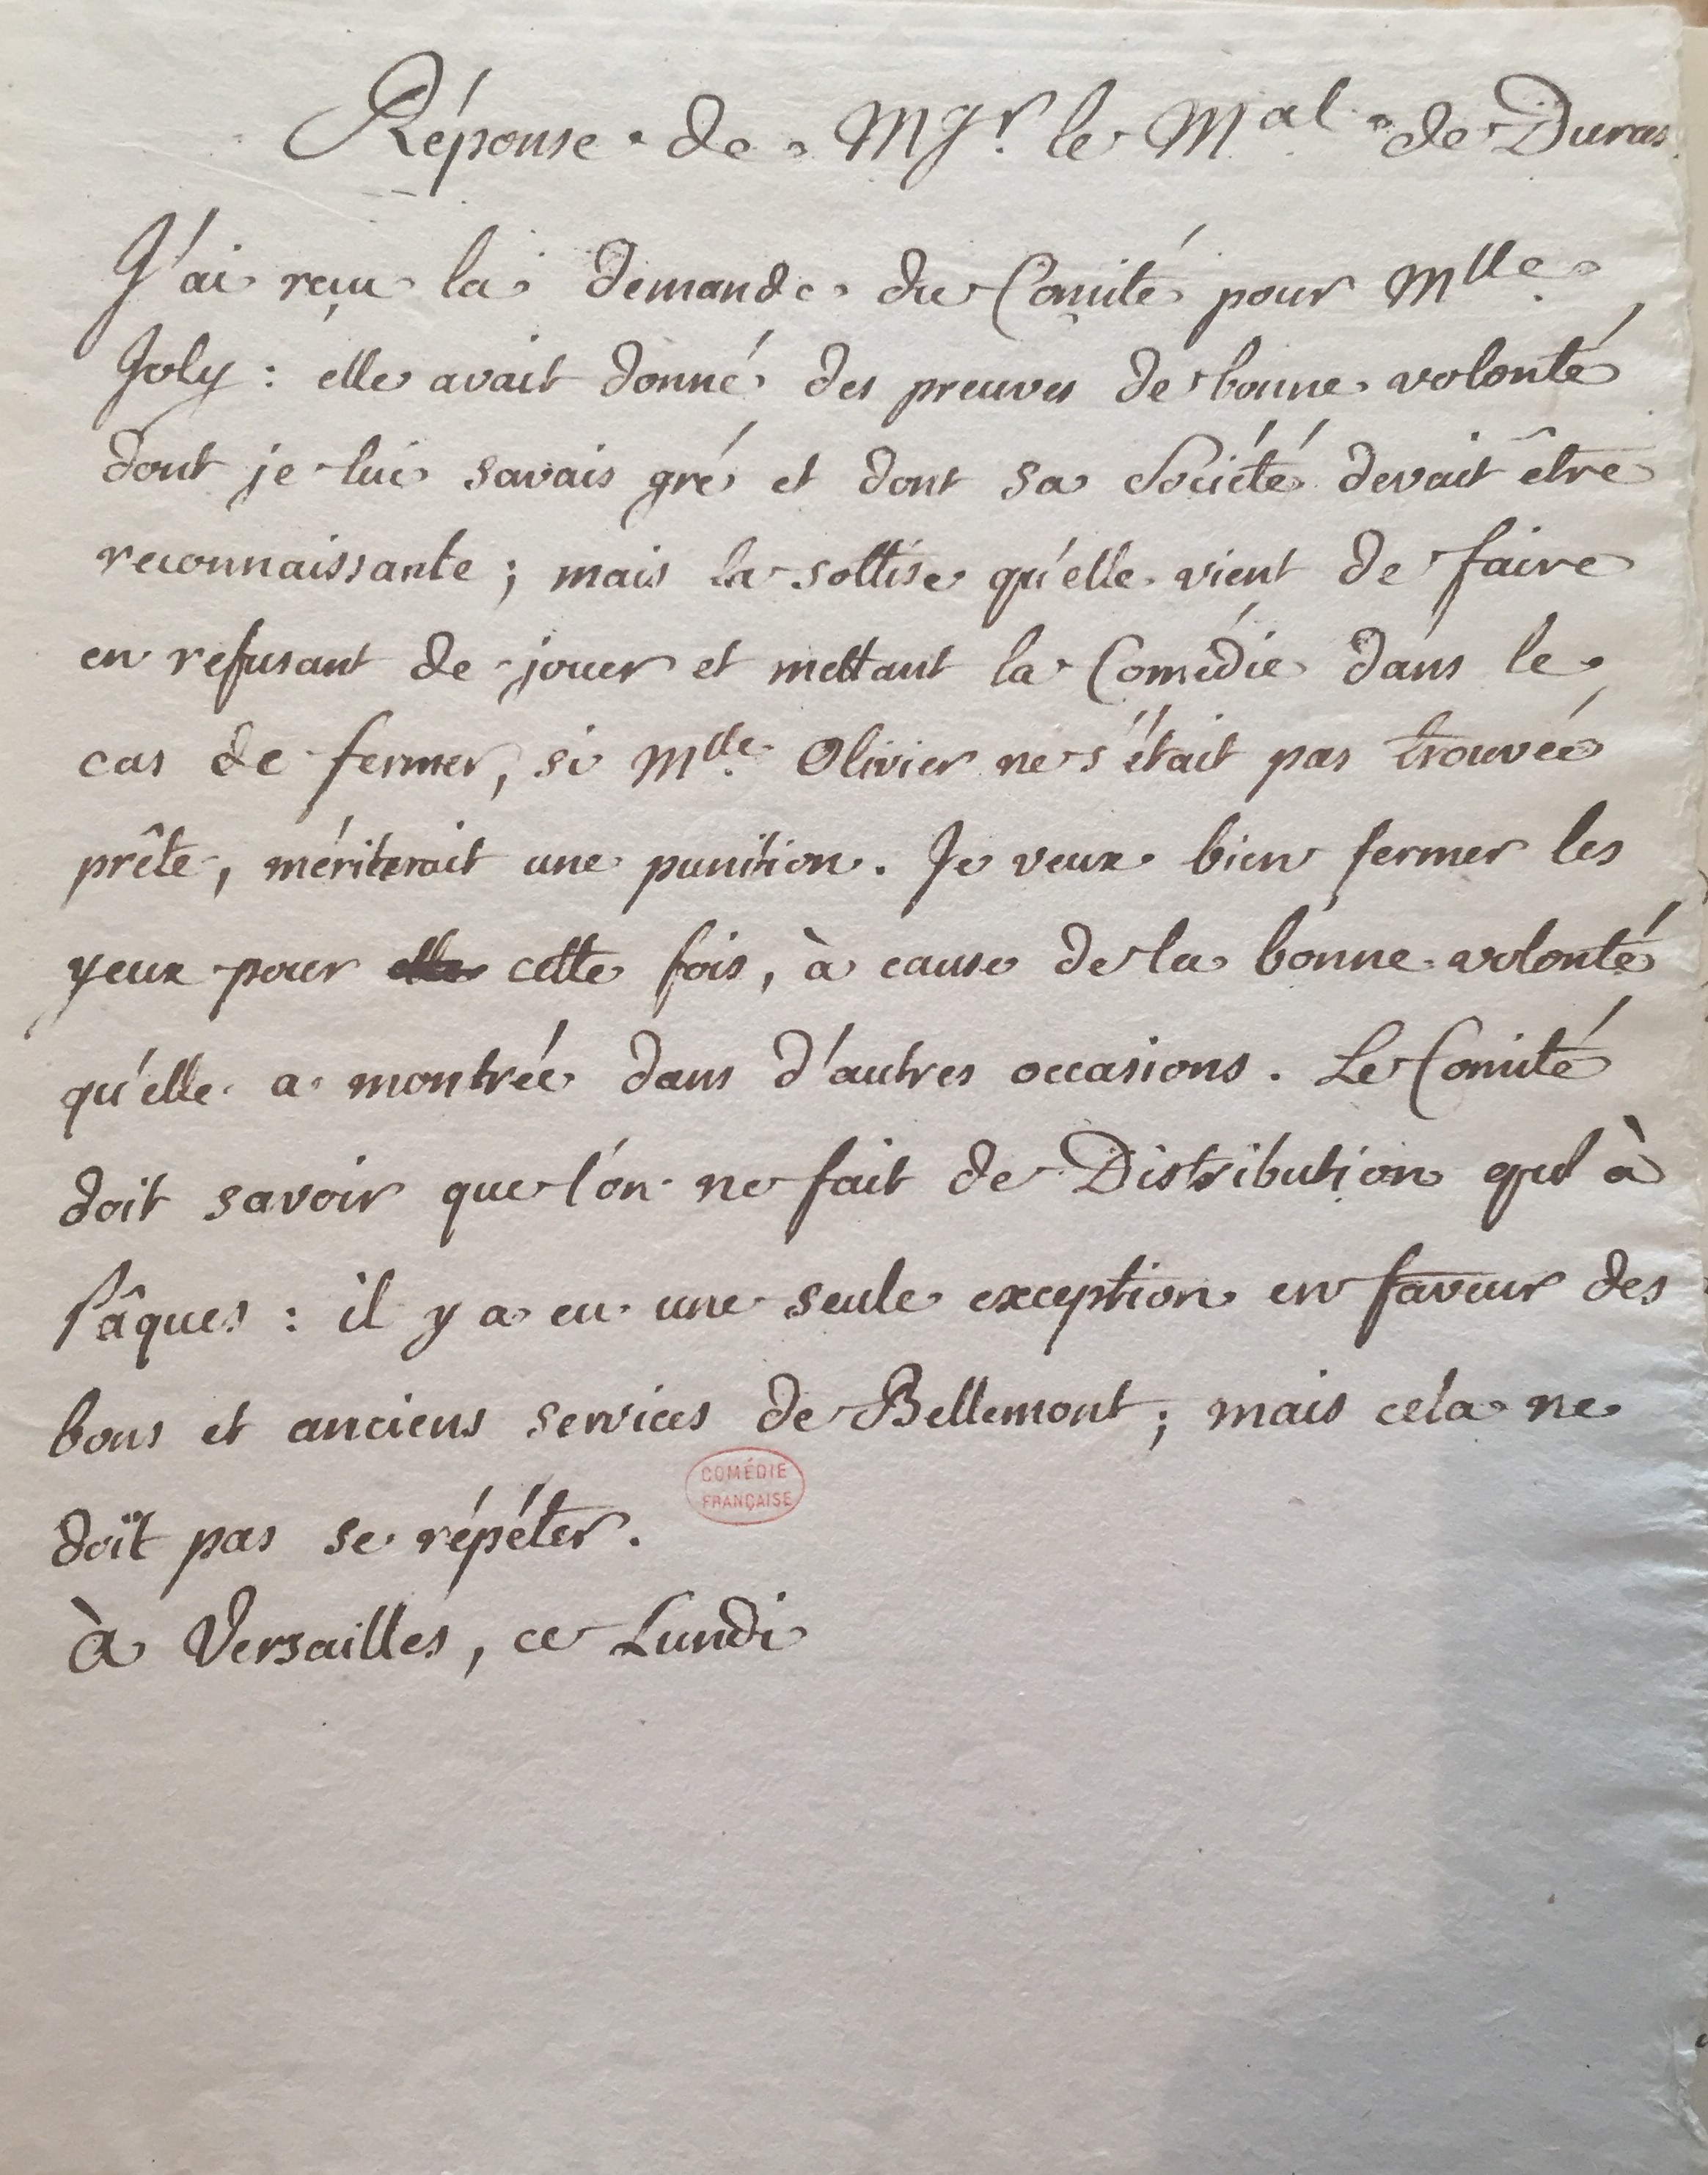 Réponse de Mgr. le Mal. de Duras.
J'ai reçu la demande du Comité pour Mlle.
Joly : elle avait donné des preuves de bonne volonté
dont je lui savais gré et dont sa Société devait être
reconnaissante ; mais la sottise qu'elle vient de faire
en refusant de jouer et mettant la Comédie dans le
cas de fermer, si Mlle. Olivier ne s'était pas trouvée
prête, mériterait une punition. Je veux bien fermer les
yeux pour elle cette fois, à cause de la bonne volonté
qu'elle a montrée dans d'autres occasions. Le Comité
doit savoir que l'on ne fait de Distribution qu'à
Pâques : il y a eu une seule exception en faveur des
bons et anciens services de Bellemont ; mais cela ne
COMÉDIE
FRANÇAISE
doit pas se répéter.
à Versailles, ce Lundi